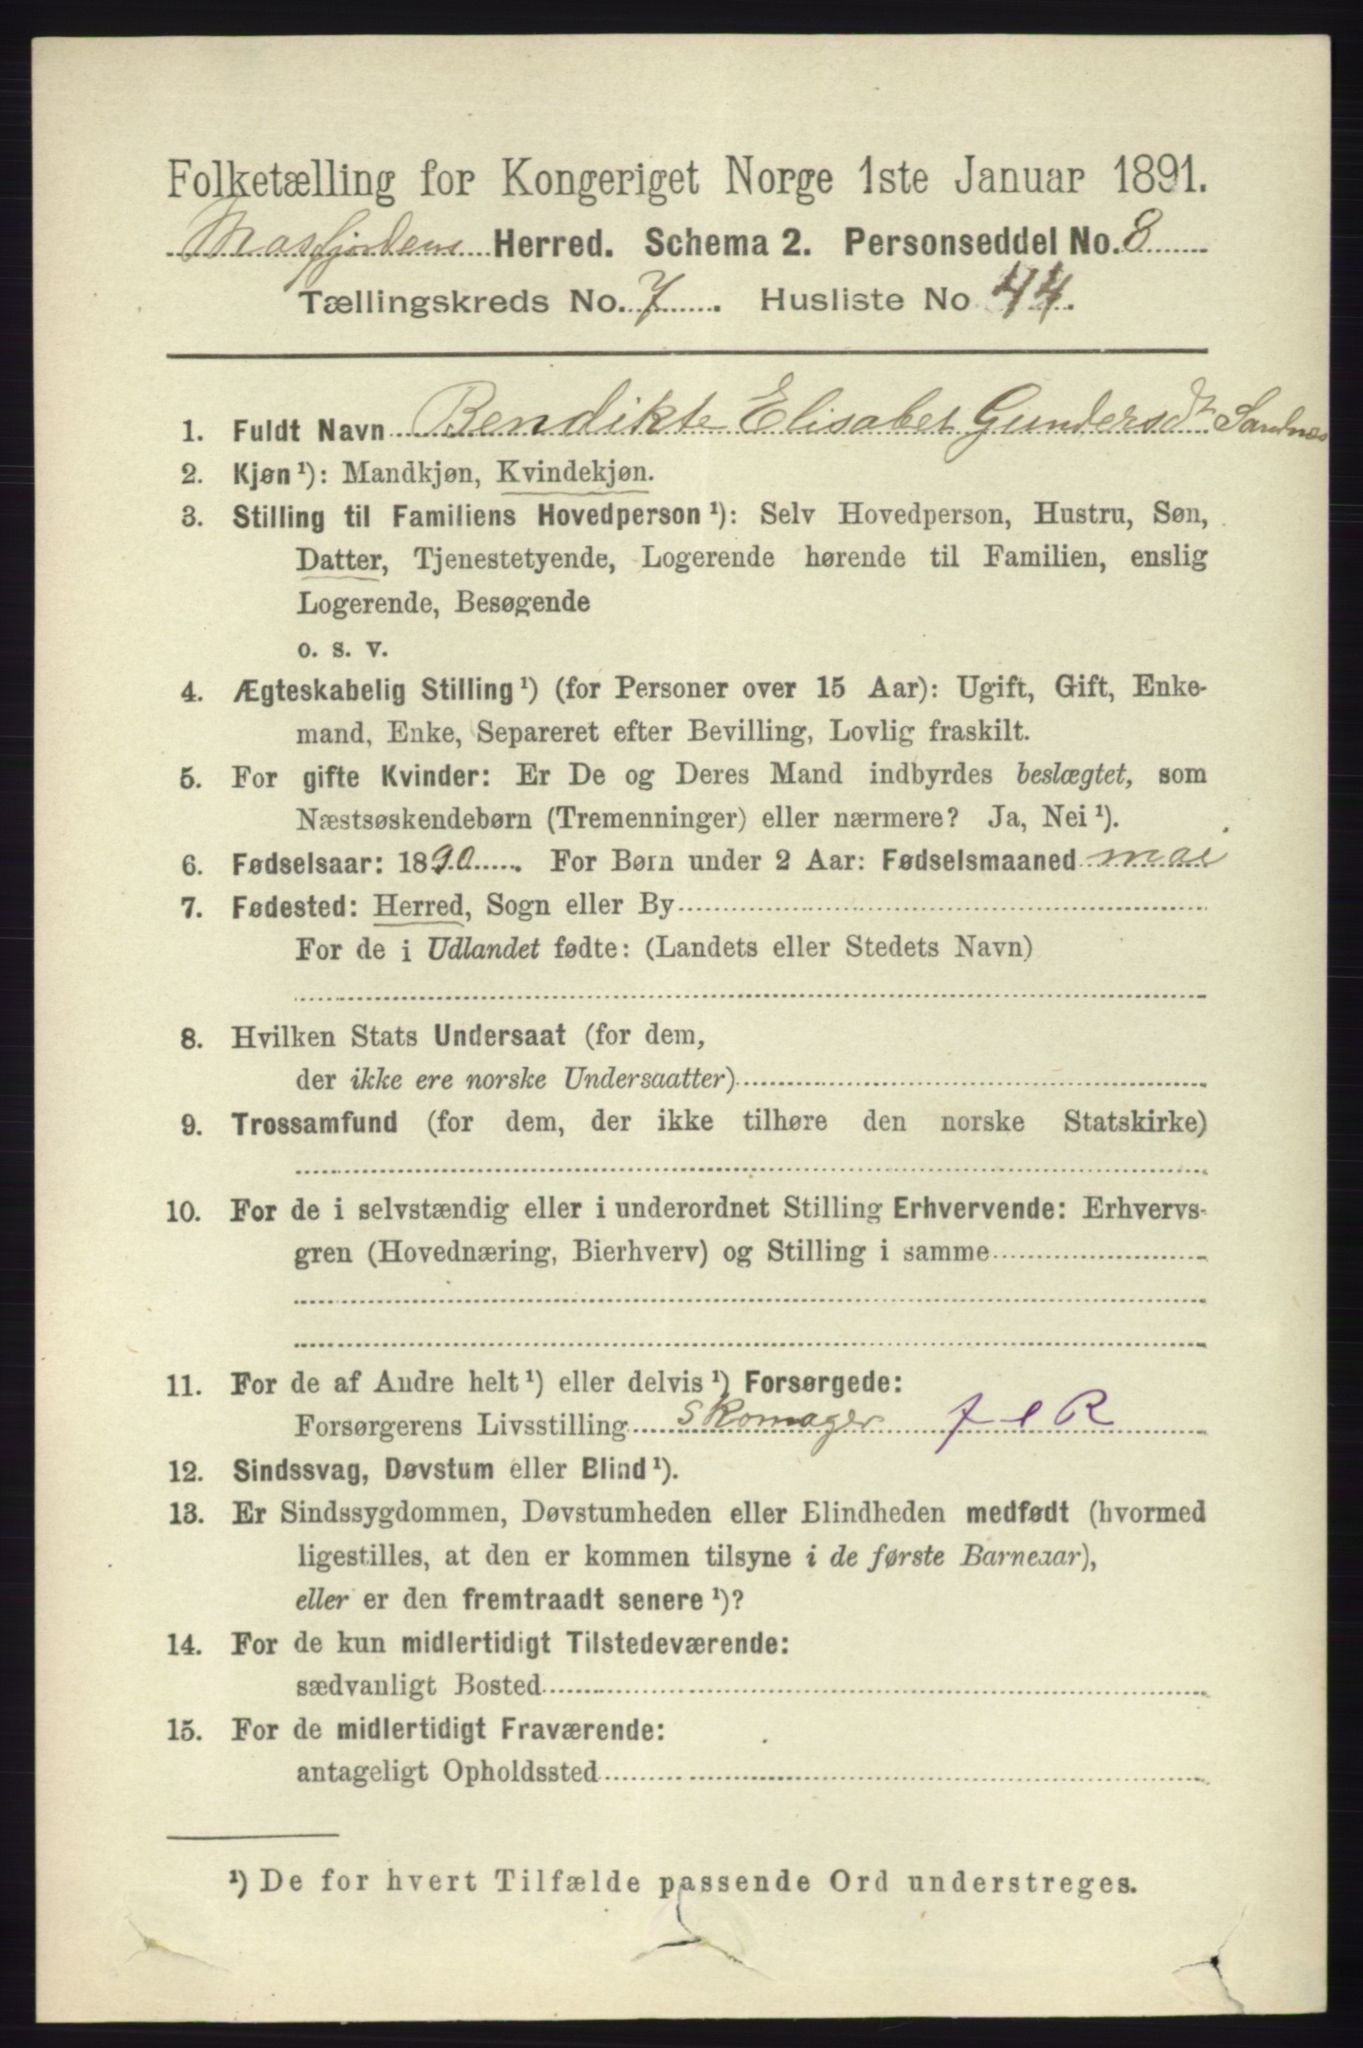 Folketælling for Kongeriget Norge 1ste Januar 1891.
Masfjordens Herred. Schema 2. Personseddel No. 8
Tællingskreds No. 7. Husliste No 44.
1. Fuldt Navn Bendikte Elisabet Gundersdr Sandnes
2. Kjøn¹): Mandkjøn, Kvindekjøn.
3. Stilling til Familiens Hovedperson¹): Selv Hovedperson, Hustru, Søn,
Datter, Tjenestetyende, Logerende hørende til Familien, enslig
Logerende, Besøgende
o. s. v.
4. Ægteskabelig Stilling¹) (for Personer over 15 Aar): Ugift, Gift, Enke-
mand, Enke, Separeret efter Bevilling, Lovlig fraskilt.
5. For gifte Kvinder: Er De og Deres Mand indbyrdes beslægtet, som
Næstsøskendebørn (Tremenninger) eller nærmere? Ja, Nei¹).
6. Fødselsaar: 1890. For Børn under 2 Aar: Fødselsmaaned mai
7. Fødested: Herred, Sogn eller By
For de i Udlandet fødte: (Landets eller Stedets Navn)
8. Hvilken Stats Undersaat (for dem,
der ikke ere norske Undersaatter)
9. Trossamfund (for dem, der ikke tilhøre den norske Statskirke)
10. For de i selvstændig eller i underordnet Stilling Erhvervende: Erhvervs-
gren (Hovednæring, Bierhverv) og Stilling i samme
11. For de af Andre helt¹) eller delvis¹) Forsørgede:
Forsørgerens Livsstilling Skomager f e R
12. Sindssvag, Døvstum eller Blind¹).
13. Er Sindssygdommen, Døvstumheden eller Blindheden medfødt (hvormed
ligestilles, at den er kommen tilsyne i de første Barneaar),
eller er den fremtraadt senere¹)?
14. For de kun midlertidigt Tilstedeværende:
sædvanligt Bosted
15. For de midlertidigt Fraværende:
antageligt Opholdssted
¹) De for hvert Tilfælde passende Ord understreges.